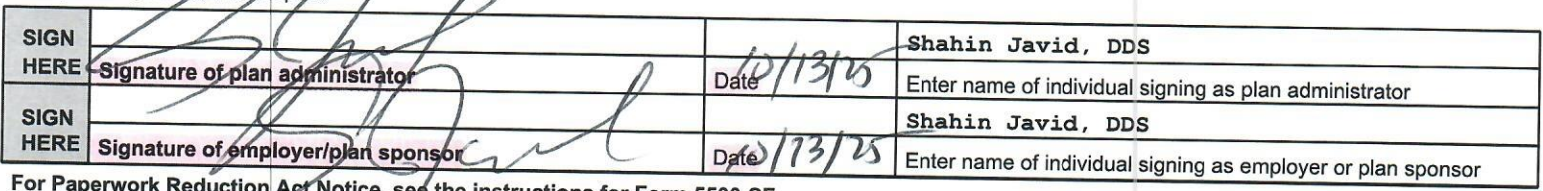 SIGN HERE
Shahin Javid, DDS
Signature of plan administrator Date 10/13/25 Enter name of individual signing as plan administrator
SIGN HERE
Shahin Javid, DDS
Signature of employer/plan sponsor Date 10/13/25 Enter name of individual signing as employer or plan sponsor
For Paperwork Reduction Act Notice, see the instructions for Form 5500-SF